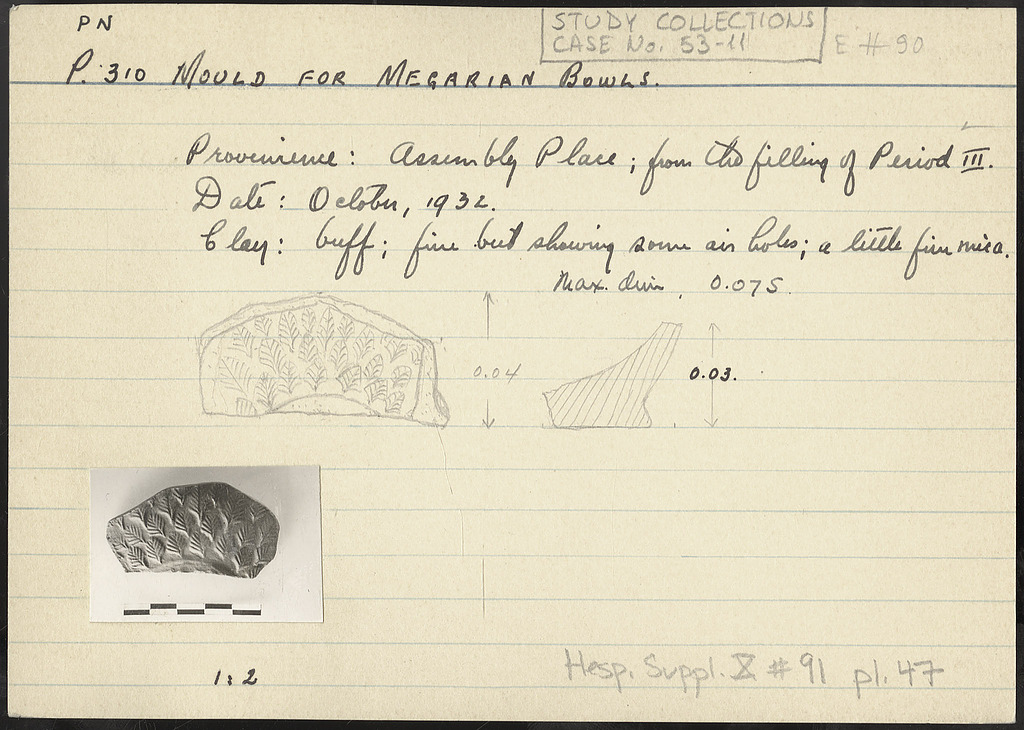 PN
STUDY COLLECTIONS
CASE No. 53-11
E # 90
P. 310 MOULD FOR MEGARIAN BOWLS.
Provenience: Assembly Place; from the filling of Period III.
Date: October, 1932.
Clay: buff; fine but showing some air holes; a little fine mica.
Max. dim. 0.075.
0.04
0.03.
1:2
Hesp. Suppl. X # 91 pl. 47